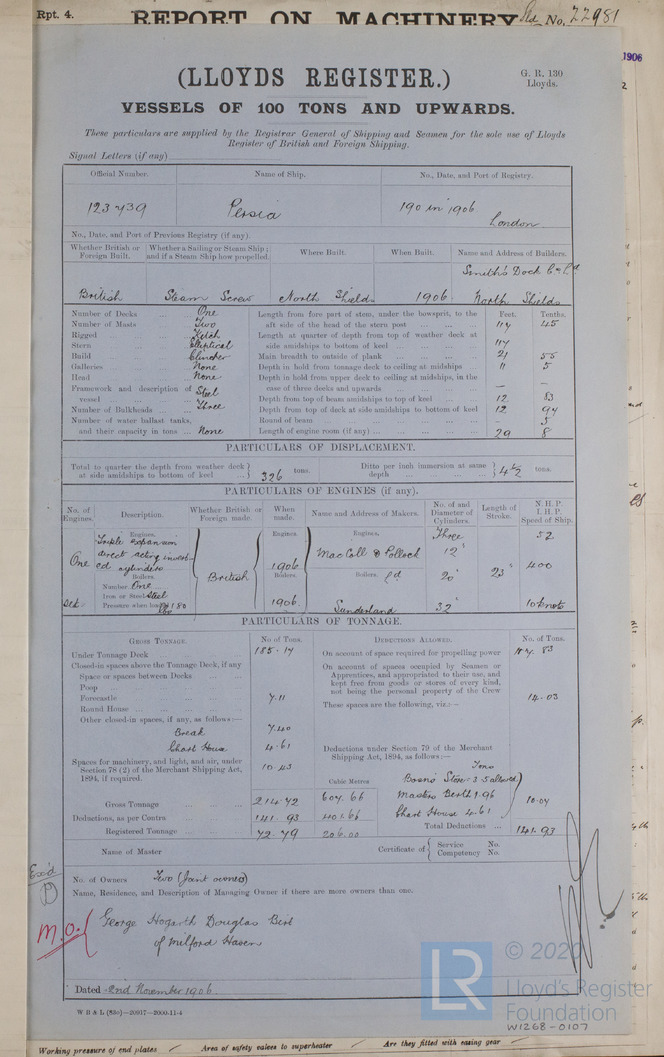 Rpt. 4.
REPORT ON MACHINERY
No. 22981
1906
(LLOYDS REGISTER.)
G. R. 130
Lloyds.
VESSELS OF 100 TONS AND UPWARDS.
These particulars are supplied by the Registrar General of Shipping and Seamen for the sole use of Lloyds
Register of British and Foreign Shipping.
Signal Letters (if any)
Official Number. Name of Ship. No., Date, and Port of Registry.
123439 Persia 190 in 1906
London
No., Date, and Port of Previous Registry (if any).
Whether British or Foreign Built. Whether a Sailing or Steam Ship; and if a Steam Ship how propelled. Where Built. When Built. Name and Address of Builders.
Smith's Dock Co Ld
British Steam Screw North Shields 1906 North Shields
Number of Decks One
Number of Masts Two
Rigged Ketch
Stern Elliptical
Build Clincher
Galleries None
Head None
Framework and description of vessel Steel
Number of Bulkheads Three
Number of water ballast tanks, and their capacity in tons None
Feet. Tenths.
Length from fore part of stem, under the bowsprit, to the aft side of the head of the stern post 117 45
Length at quarter of depth from top of weather deck at side amidships to bottom of keel 117
Main breadth to outside of plank 21 55
Depth in hold from tonnage deck to ceiling at midships 11 5
Depth in hold from upper deck to ceiling at midships, in the case of three decks and upwards — —
Depth from top of beam amidships to top of keel 12 53
Depth from top of deck at side amidships to bottom of keel 12 94
Round of beam - 5
Length of engine room (if any) 29 8
PARTICULARS OF DISPLACEMENT.
Total to quarter the depth from weather deck at side amidships to bottom of keel 326 tons.
Ditto per inch immersion at same depth 4½ tons.
PARTICULARS OF ENGINES (if any).
No. of Engines. Description. Whether British or Foreign made. When made. Name and Address of Makers. No. of and Diameter of Cylinders. Length of Stroke. N.H.P. I.H.P. Speed of Ship.
Engines. Engines. Engines.
One Triple expansion
direct acting invert-
ed cylinders
British 1906 MacColl & Pollock Ld
Three 12" 20" 32" 23" 52 400 10 knots
Boilers. Boilers. Boilers.
Number One
Iron or Steel Steel
Pressure when loaded 180 lbs
1906 Sunderland
PARTICULARS OF TONNAGE.
GROSS TONNAGE. No of Tons.
Under Tonnage Deck 185.17
Closed-in spaces above the Tonnage Deck, if any
Space or spaces between Decks
Poop
Forecastle 7.11
Round House
Other closed-in spaces, if any, as follows:—
Break 7.40
Chart House 4.61
Spaces for machinery, and light, and air, under
Section 78 (2) of the Merchant Shipping Act,
1894, if required. 10.43
Cubic Metres
Gross Tonnage 214.72 607.66
Deductions, as per Contra 141.93 401.66
Registered Tonnage 72.79 206.00
DEDUCTIONS ALLOWED. No. of Tons.
On account of space required for propelling power 117.83
On account of spaces occupied by Seamen or
Apprentices, and appropriated to their use, and
kept free from goods or stores of every kind,
not being the personal property of the Crew 14.03
These spaces are the following, viz:—
Deductions under Section 79 of the Merchant
Shipping Act, 1894, as follows:—
Tons
Bosns Store 3.5 allowed
Masters Berth 1.96
Chart House 4.61
10.07
Total Deductions 141.93
Name of Master
Certificate of Service No.
Competency No.
Exd
No. of Owners Two (Joint owners)
Name, Residence, and Description of Managing Owner if there are more owners than one.
M.O. George Hogarth Douglas Birt
of Milford Haven
Dated 2nd November 1906.
W B & L (83o)—20917—2000-11-4
© 2020
LR
Lloyd's Register
Foundation
W1268-0107
Working pressure of end plates Area of safety valves to superheater Are they fitted with easing gear